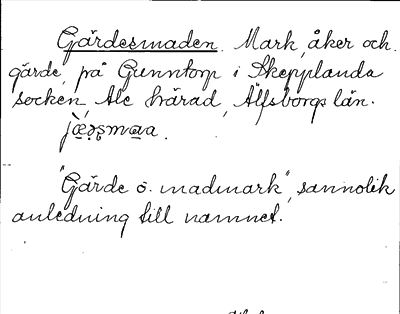 Gärdesmaden. Mark, åker och
gärde, på Grenntorp i Skepplanda
socken, Ale härad, Älfsborgs län.
"Gärde o. madmark", sannolik
anledning till namnet.